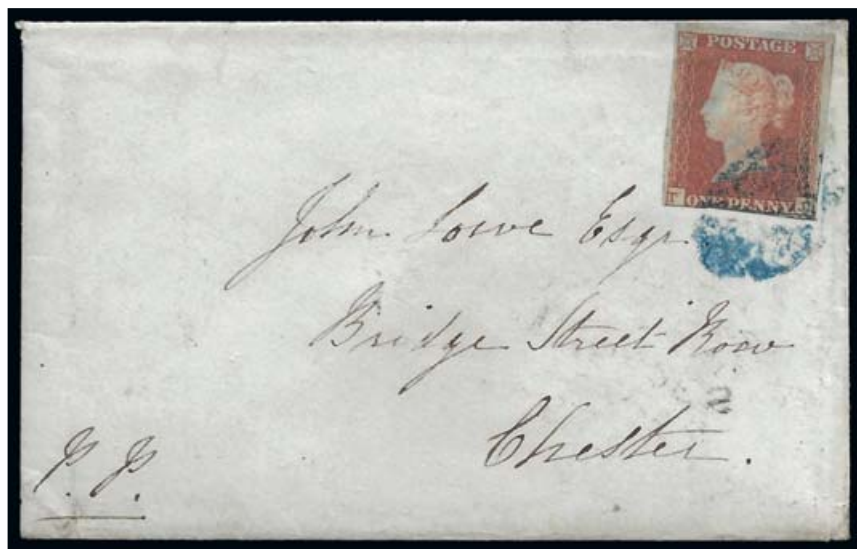 POSTAGE
T ONE PENNY
John Lowe Esqr.
Bridge Street Row
Chester.
P. P.